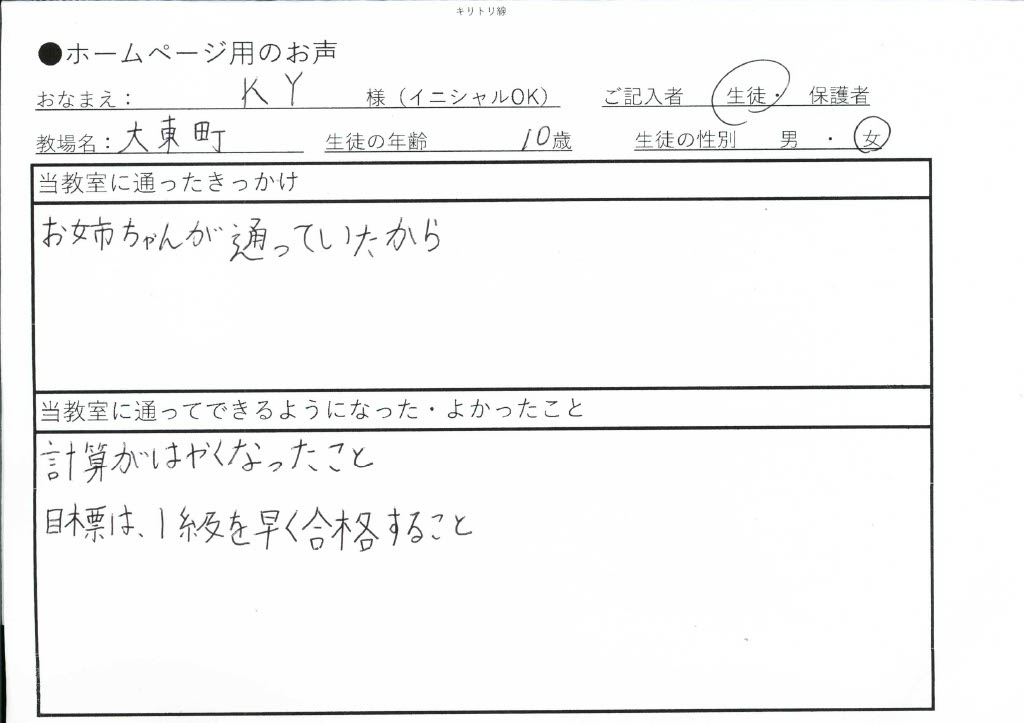 キリトリ線
●ホームページ用のお声
おなまえ： KY 様（イニシャルOK） ご記入者 生徒・ 保護者
教場名：大東町 生徒の年齢 10歳 生徒の性別 男 ・ 女
当教室に通ったきっかけ
お姉ちゃんが通っていたから
当教室に通ってできるようになった・よかったこと
計算がはやくなったこと
目標は、1級を早く合格すること